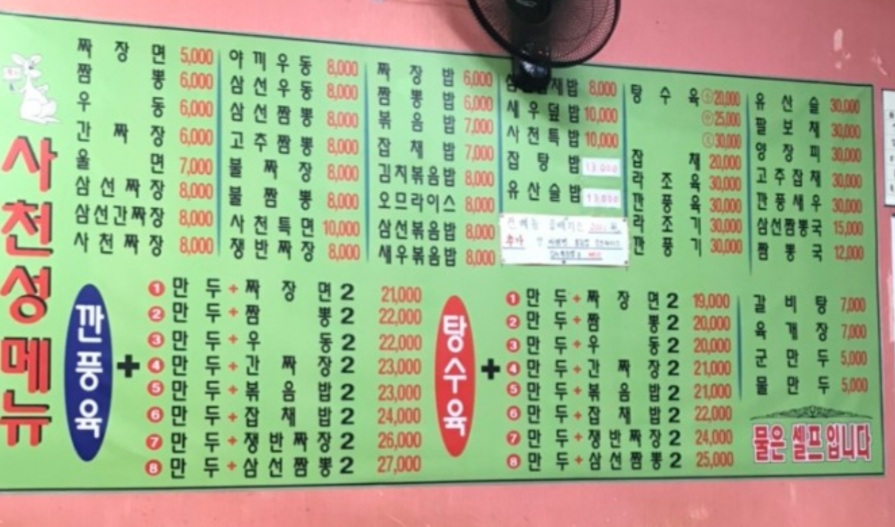 사천성메뉴
짜장면 5,000
짬뽕 6,000
우동 6,000
간짜장 6,000
울면 7,000
삼선짜장 8,000
삼선간짜장 8,000
사천짜장 8,000
야끼우동 8,000
삼선우동 8,000
삼선짬뽕 8,000
고추짬뽕 8,000
불짜장 8,000
불짬뽕 8,000
사천특면 10,000
쟁반짜장 8,000
짜장밥 6,000
짬뽕밥 6,000
볶음밥 7,000
잡채밥 7,000
김치볶음밥 8,000
오므라이스 8,000
삼선볶음밥 8,000
새우볶음밥 8,000
8,000
새우덮밥 10,000
사천특밥 10,000
잡탕밥 13,000
유산슬밥 13,000
탕수육 소 20,000
中 25,000
大 30,000
잡채 20,000
라조육 30,000
깐풍육 30,000
라조기 30,000
깐풍기 30,000
유산슬 30,000
팔보채 30,000
양장피 30,000
고추잡채 30,000
깐풍새우 30,000
삼선짬뽕국 15,000
짬뽕국 12,000
깐풍육 +
1 만두+짜장면2 21,000
2 만두+짬뽕2 22,000
3 만두+우동2 22,000
4 만두+간짜장2 23,000
5 만두+볶음밥2 23,000
6 만두+잡채밥2 24,000
7 만두+쟁반짜장2 26,000
8 만두+삼선짬뽕2 27,000
탕수육 +
1 만두+짜장면2 19,000
2 만두+짬뽕2 20,000
3 만두+우동2 20,000
4 만두+간짜장2 21,000
5 만두+볶음밥2 21,000
6 만두+잡채밥2 22,000
7 만두+쟁반짜장2 24,000
8 만두+삼선짬뽕2 25,000
갈비탕 7,000
육개장 7,000
군만두 5,000
물만두 5,000
물은 셀프입니다